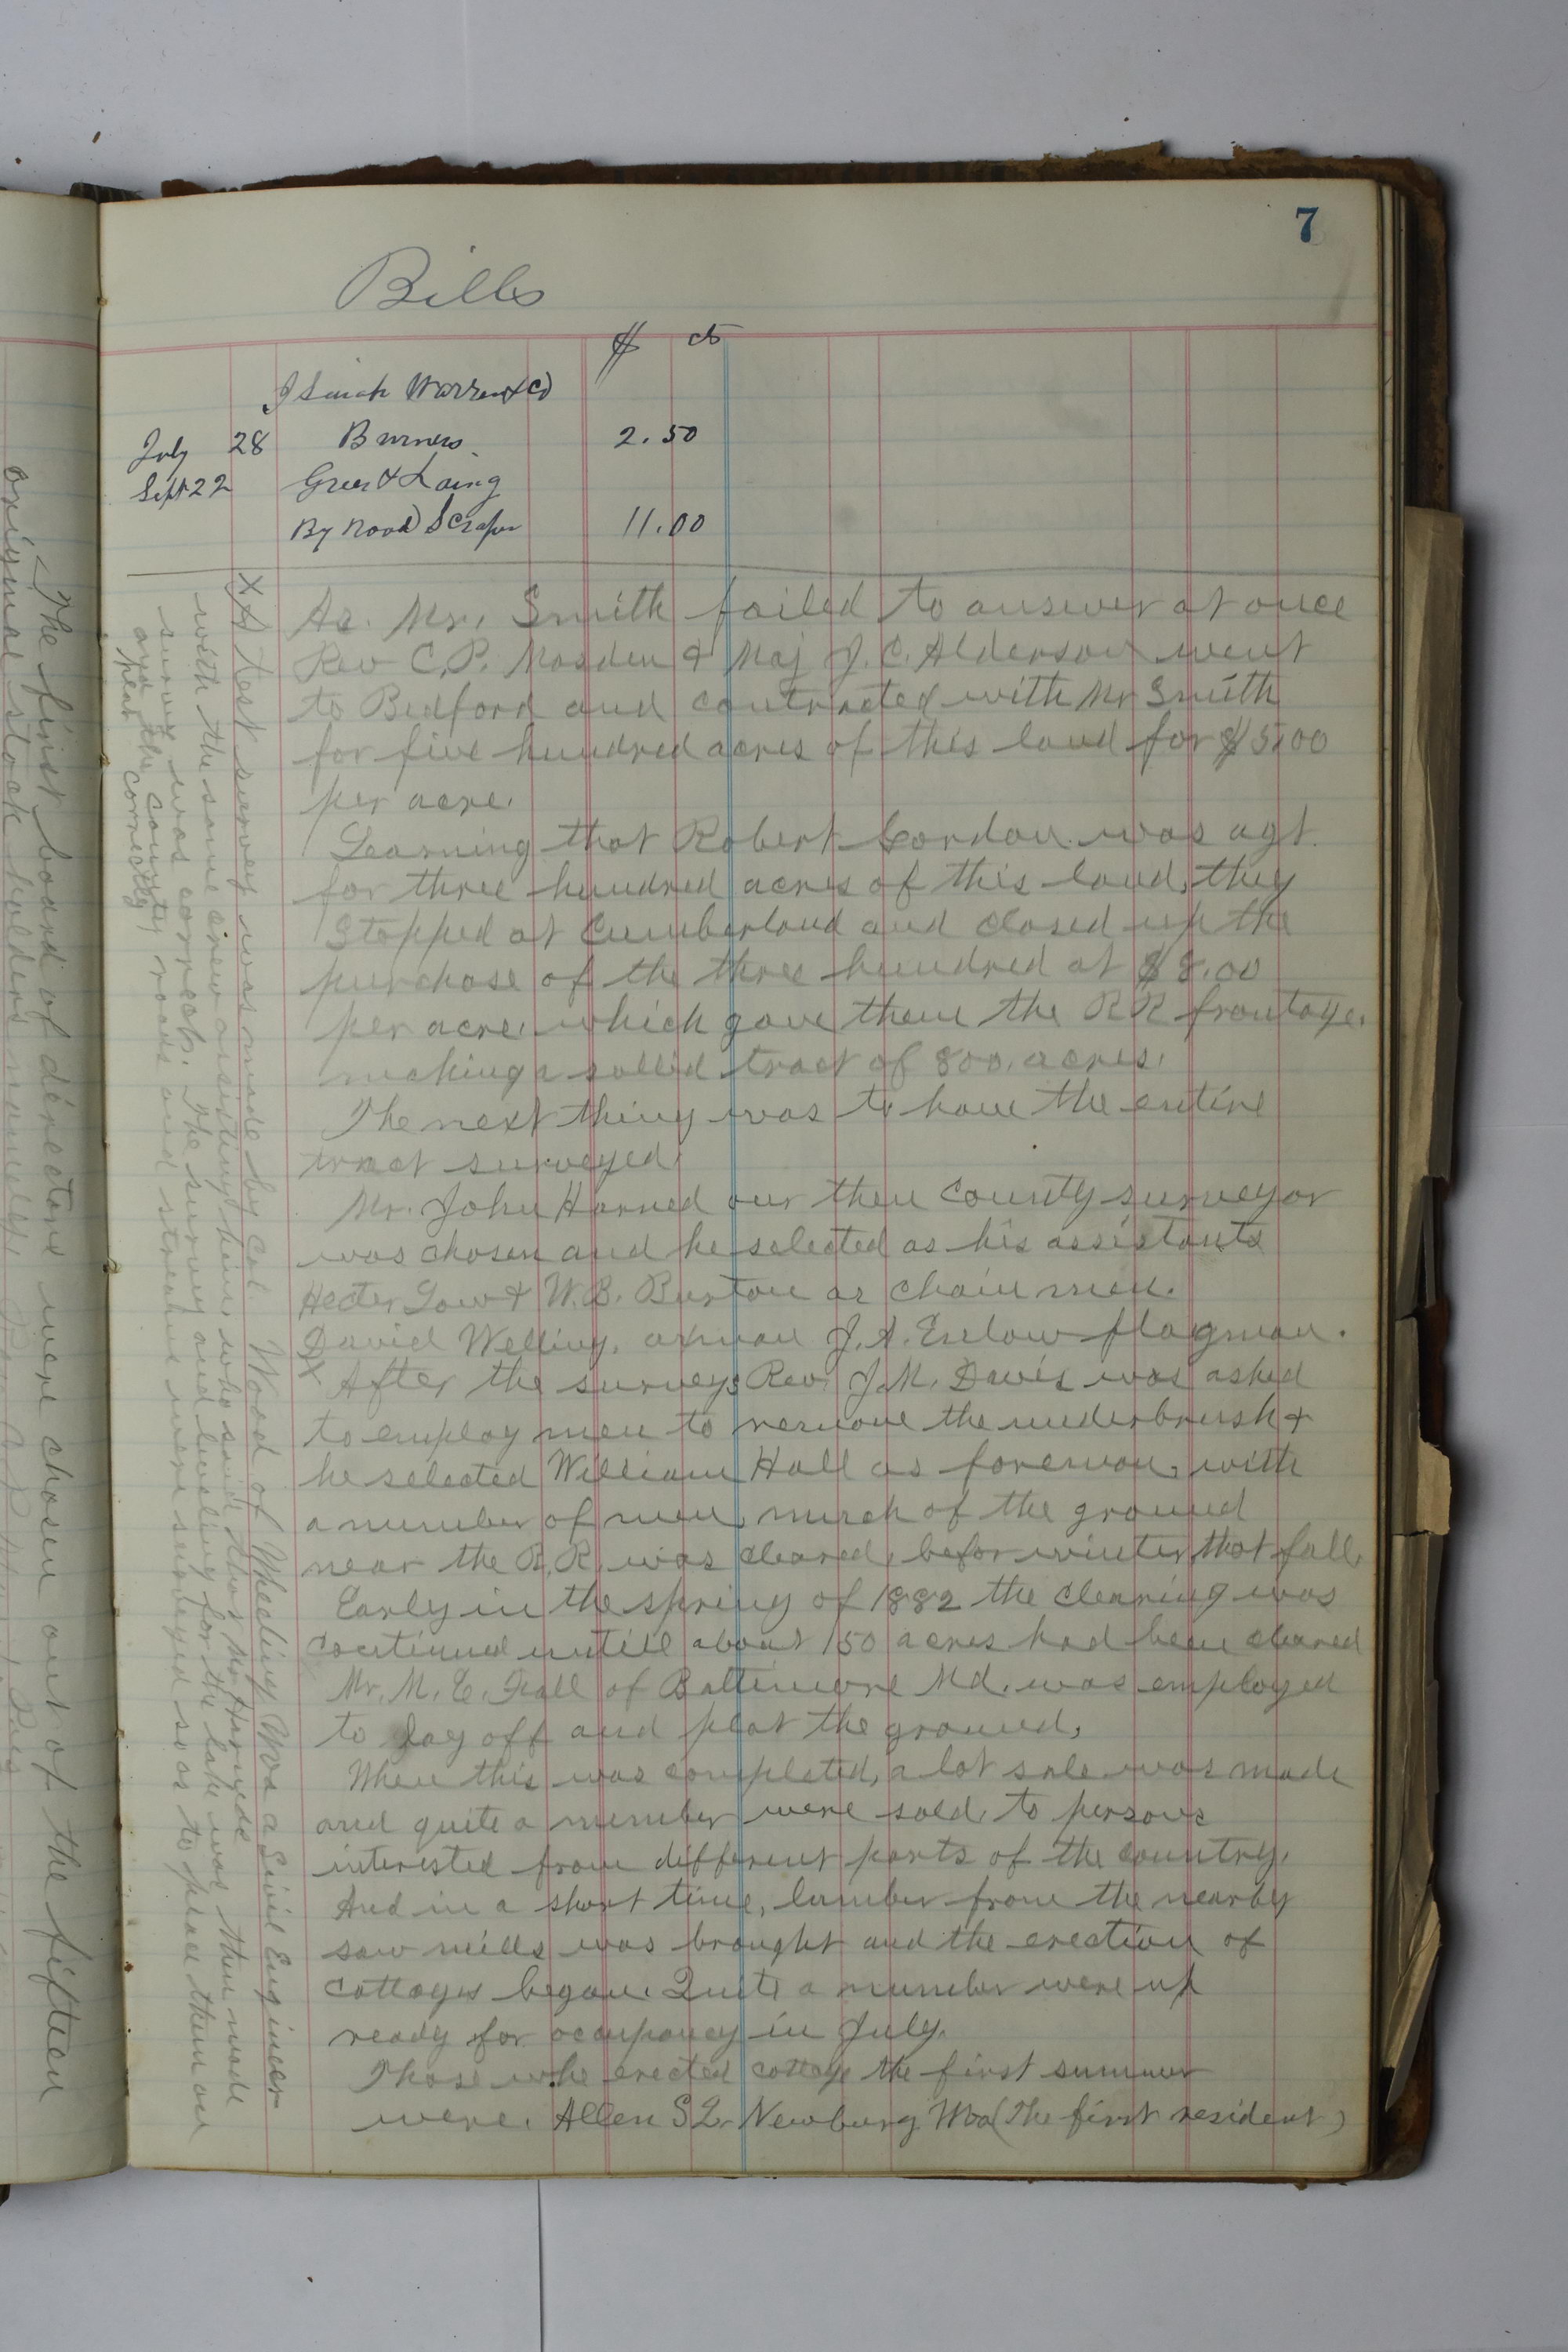 7
Bills
$ cts
Isaiah Warren & Co
July 28 Burners 2.50
Sept 22 Greer & Laing
By Road Scraper 11.00
As. Mr. Smith failed to answer at once
Rev C.P. Masden & Maj J.C. Alderson went
to Bedford and contracted with Mr Smith
for five hundred acres of this land for $5.00
per acre.
Learning that Robert Gordon was agt.
for three hundred acres of this land, they
stopped at Cumberland and closed up the
purchase of the three hundred at $8.00
per acre. which gave them the RR frontage.
making a sollid tract of 800. acres.
The next thing was to have the entire
tract surveyed.
Mr. John Harned our then County surveyor
was chosen and he selected as his assistants
Hecter Low & W.B. Burton as chain men.
David Welling, axman J.A. Enlow flagman.
X After the surveys Rev. J.M. Davis was asked
to employ men to remove the underbrush &
he selected William Hall as foreman, with
a number of men, much of the ground
near the R.R. was cleared, befor winter that fall.
Early in the spring of 1882 the clearing was
continued untill about 150 acres had been cleared
Mr. M. E. Fall of Baltimore Md. was employed
to lay off and plat the ground,
When this was completed, a lot sale was made
and quite a number were sold, to persons
interested from different parts of the country.
And in a short time, lumber from the nearby
saw mills was brought and the erection of
cottages began. Quite a number were up
ready for occupancy in July.
Those who erected cottage the first summer
were. Allen S L. Newburg Wva (The first resident)
X A test survey was made by Col. Wood of Wheeling Wva a Civil Engineer
with the same crew assisting him who said that Mr Harneds
survey was correct. The survey and leveling for the lake was then made
and the county roads and streams were surveyed so as to plat them on
plat correctly
The first board of directors were chosen out of the fifteen
original stock holders namely.